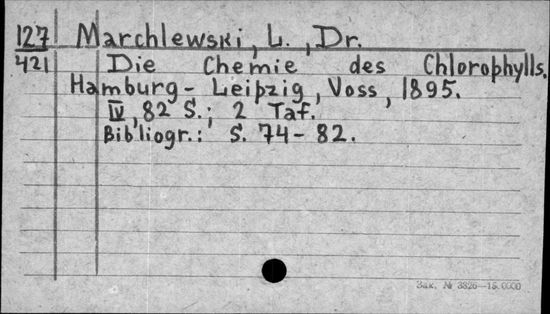 127 Marchlewski, L., Dr.
421 Die Chemie des Chlorophylls.
Hamburg - Leipzig, Voss, 1895.
IV, 82 S.; 2 Taf.
Bibliogr.: S. 74-82.
Зак. № 3826—15.0000